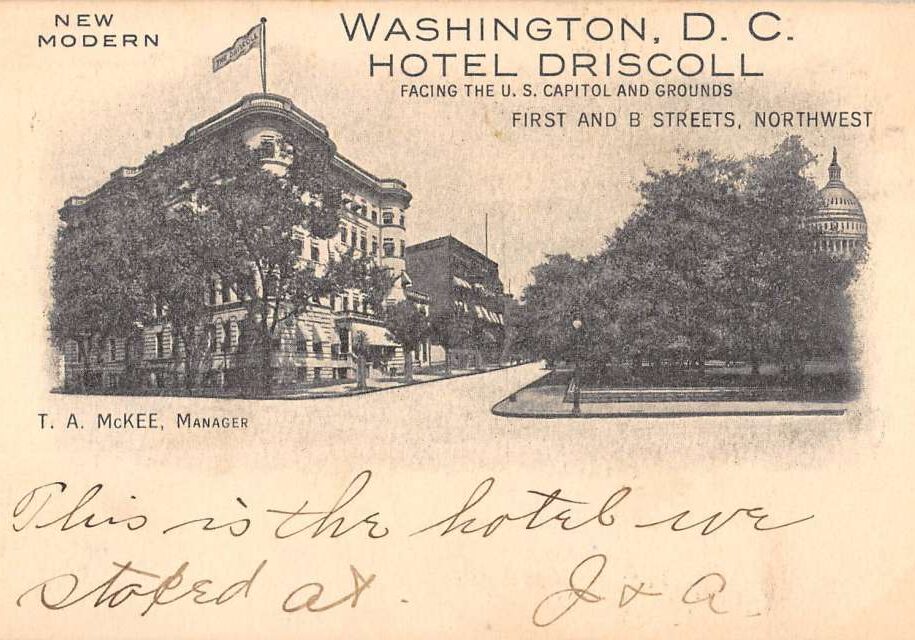 NEW
MODERN
THE DRISCOLL
WASHINGTON, D. C.
HOTEL DRISCOLL
FACING THE U. S. CAPITOL AND GROUNDS
FIRST AND B STREETS, NORTHWEST
T. A. McKEE, MANAGER
This is the hotel we
stoped at. J & A.